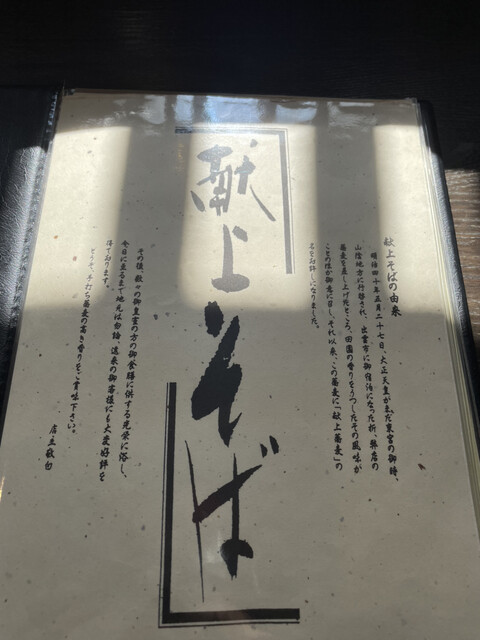 献上そばの由来
明治四十年五月二十七日、大正天皇がまだ東宮の御時、
山陰地方に行啓され、出雲市に御宿泊になった折、弊店の
蕎麦を差し上げたところ、田園の香りをうつしたその風味が
ことのほか御意に召し、それ以来、この蕎麦に「献上蕎麦」の
名をお許しになりました。
献上そば
その後、数々の御皇室の方の御食膳に供する光栄に浴し、
今日に至るまで地元は勿論、遠来の御客様にも大変好評を
得ております。
どうぞ、手打ち蕎麦の高き香りをご賞味下さい。
店主敬白